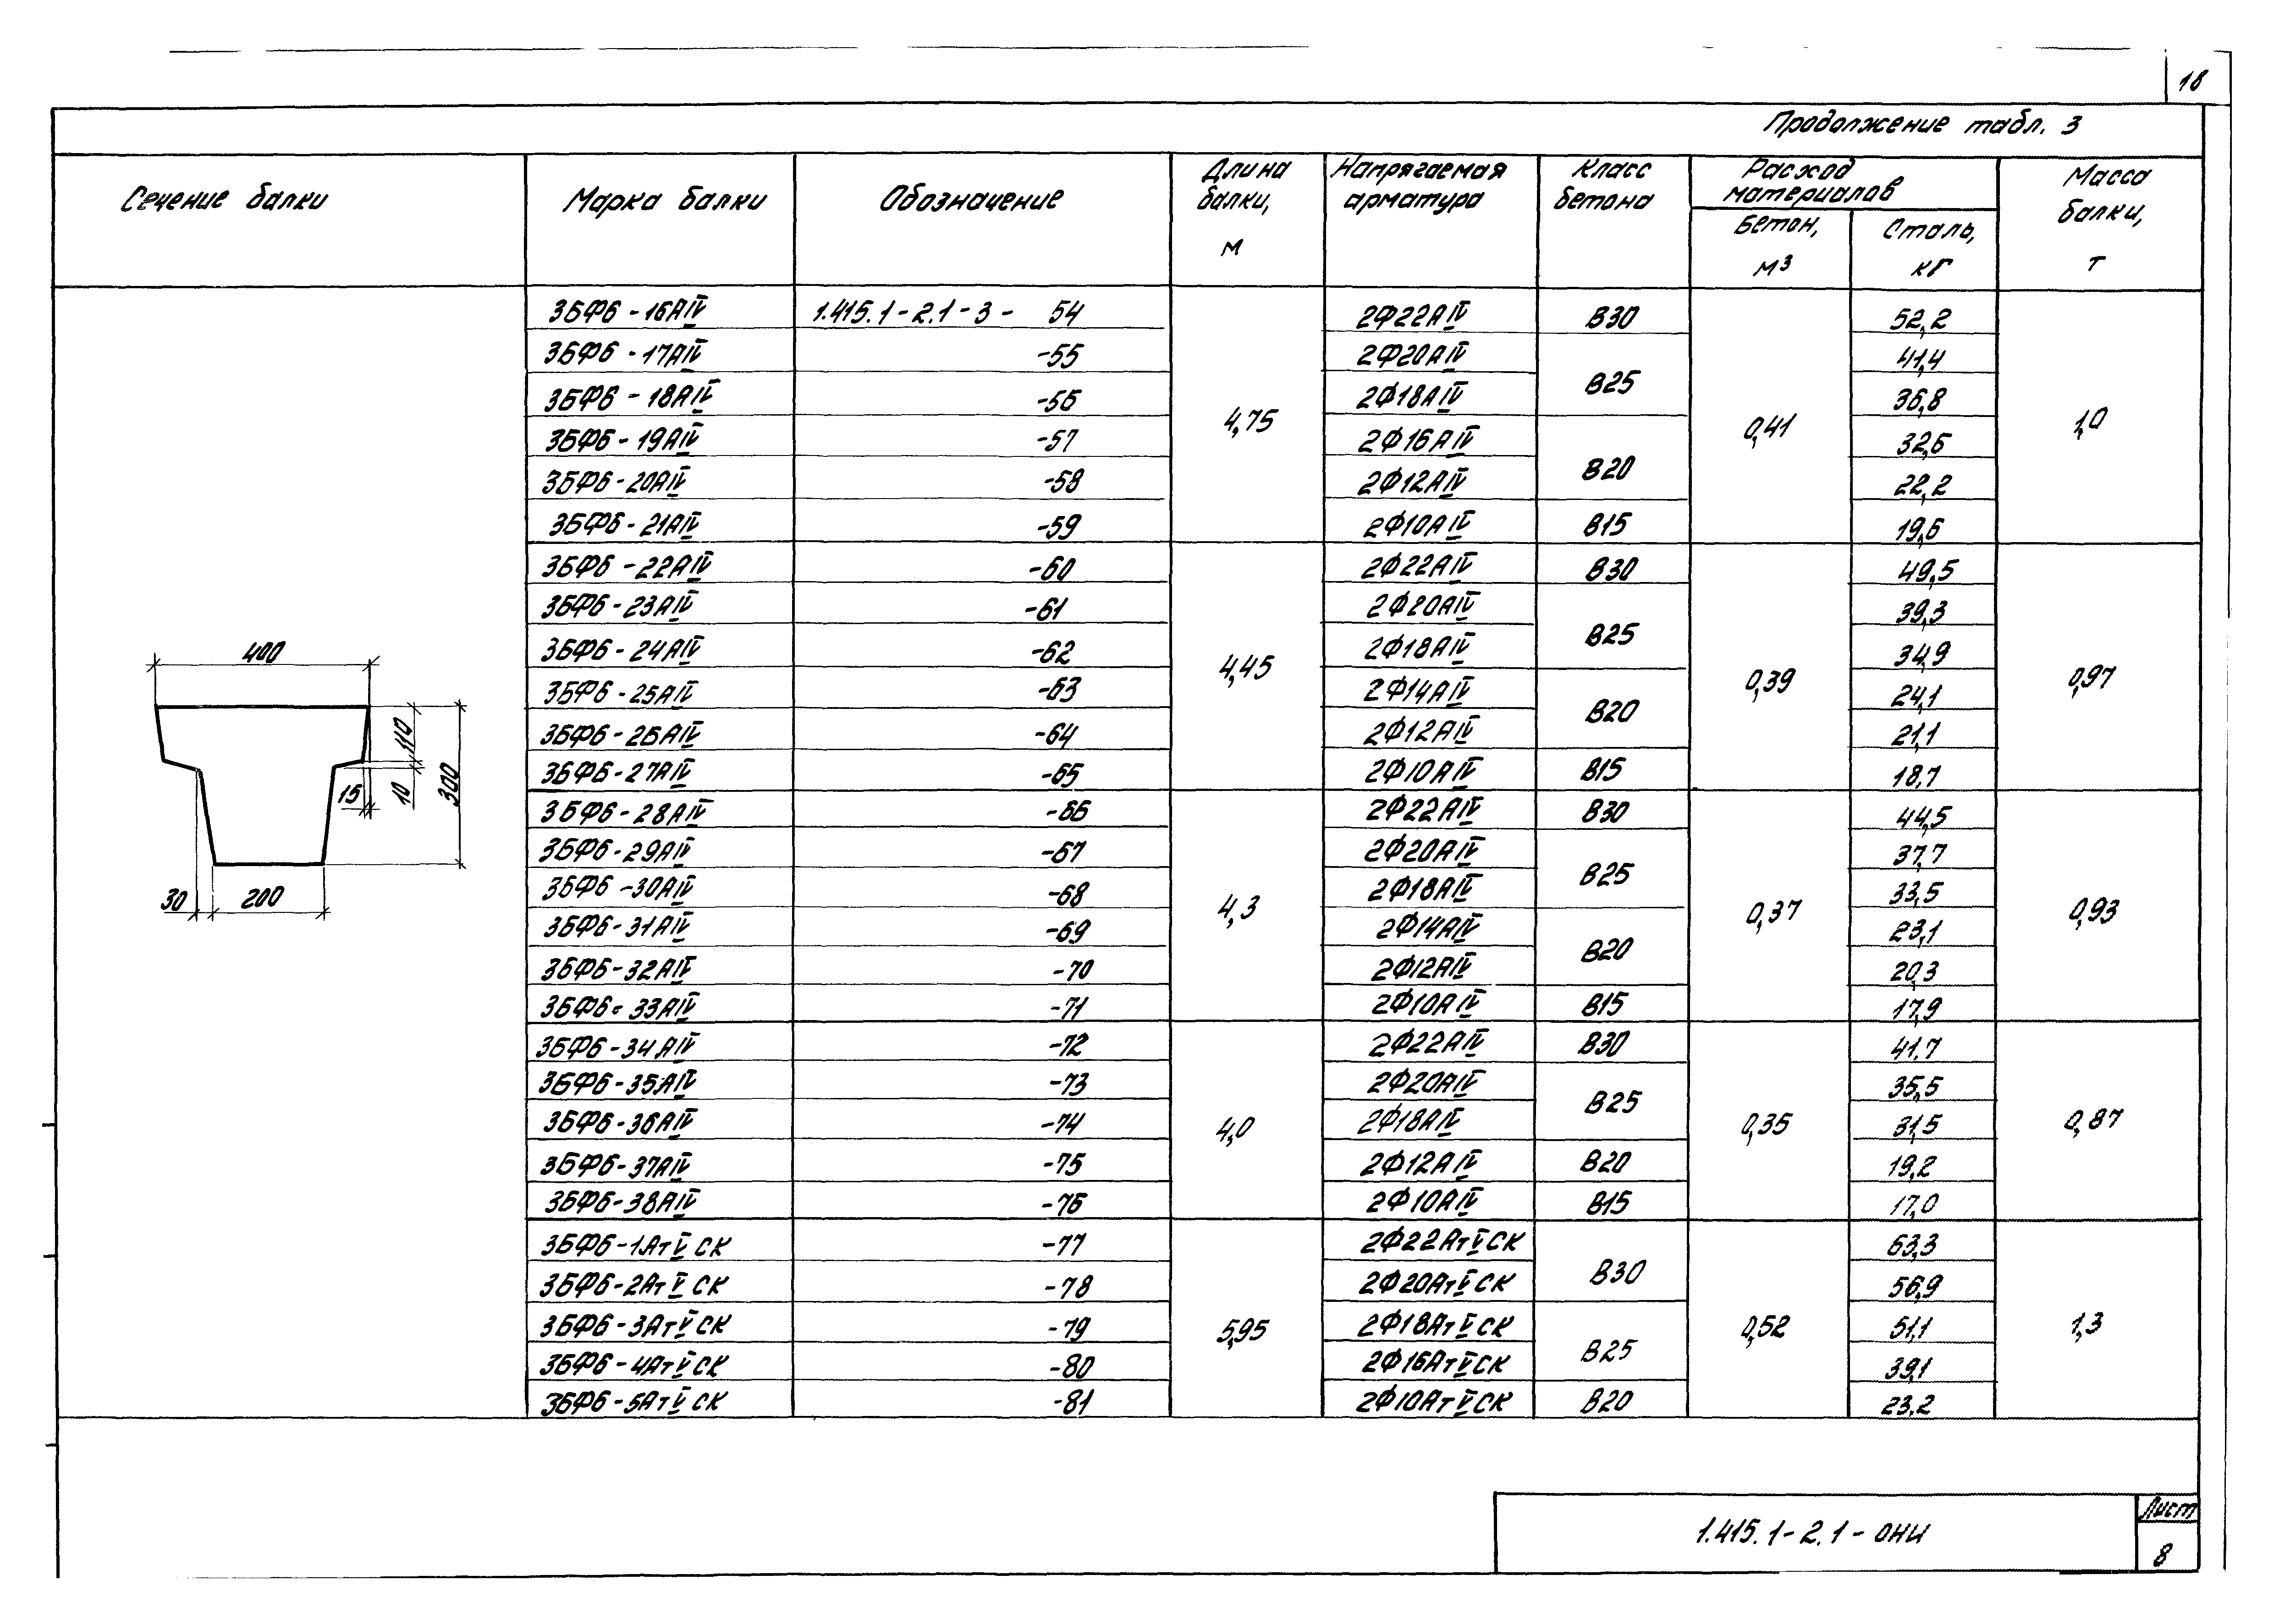 18
Продолжение табл. 3
Сечение балки
Марка балки
Обозначение
Длина балки, м
Напрягаемая арматура
Класс бетона
Расход материалов
Бетон, м3
Сталь, кг
Масса балки, т
3БФ6-16АIV 1.415.1-2.1-3-54 4,75 2Ф22АIV В30 0,41 52,2 1,0
3БФ6-17АIV -55 2Ф20АIV В25 41,4
3БФ6-18АIV -56 2Ф18АIV 36,8
3БФ6-19АIV -57 2Ф16АIV В20 32,6
3БФ6-20АIV -58 2Ф12АIV 22,2
3БФ6-21АIV -59 2Ф10АIV В15 19,6
3БФ6-22АIV -60 4,45 2Ф22АIV В30 0,39 49,5 0,97
3БФ6-23АIV -61 2Ф20АIV В25 39,3
3БФ6-24АIV -62 2Ф18АIV 34,9
3БФ6-25АIV -63 2Ф14АIV В20 24,1
3БФ6-26АIV -64 2Ф12АIV 21,1
3БФ6-27АIV -65 2Ф10АIV В15 18,7
3БФ6-28АIV -66 4,3 2Ф22АIV В30 0,37 44,5 0,93
3БФ6-29АIV -67 2Ф20АIV В25 37,7
3БФ6-30АIV -68 2Ф18АIV 33,5
3БФ6-31АIV -69 2Ф14АIV В20 23,1
3БФ6-32АIV -70 2Ф12АIV 20,3
3БФ6-33АIV -71 2Ф10АIV В15 17,9
3БФ6-34АIV -72 4,0 2Ф22АIV В30 0,35 41,7 0,87
3БФ6-35АIV -73 2Ф20АIV В25 35,5
3БФ6-36АIV -74 2Ф18АIV 31,5
3БФ6-37АIV -75 2Ф12АIV В20 19,2
3БФ6-38АIV -76 2Ф10АIV В15 17,0
3БФ6-1АтVСК -77 5,95 2Ф22АтVСК В30 0,52 63,3 1,3
3БФ6-2АтVСК -78 2Ф20АтVСК 56,9
3БФ6-3АтVСК -79 2Ф18АтVСК В25 51,1
3БФ6-4АтVСК -80 2Ф16АтVСК 39,1
3БФ6-5АтVСК -81 2Ф10АтVСК В20 23,2
400
110
10
300
15
30
200
1.415.1-2.1-ОНИ
Лист
8